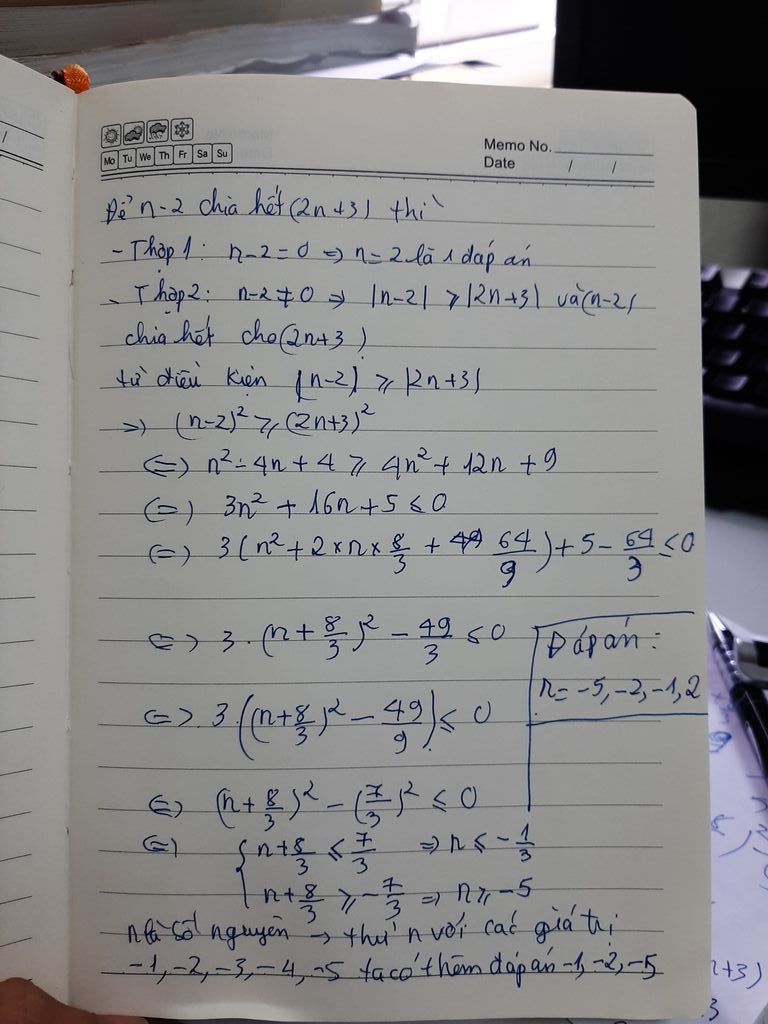 Mo Tu We Th Fr Sa Su
Memo No.
Date / /
Để n-2 chia hết (2n+3) thì
- Thợp 1: n-2 = 0 => n = 2 là 1 đáp án
- Thợp 2: n-2 ≠ 0 => |n-2| ⩾ |2n+3| và (n-2)
chia hết cho (2n+3)
từ điều kiện |n-2| ⩾ |2n+3|
=> (n-2)² ⩾ (2n+3)²
<=> n² - 4n + 4 ⩾ 4n² + 12n + 9
<=> 3n² + 16n + 5 ⩽ 0
<=> 3(n² + 2×n×8/3 + 64/9) + 5 - 64/3 ⩽ 0
<=> 3.(n + 8/3)² - 49/3 ⩽ 0
<=> 3.((n+8/3)² - 49/9) ⩽ 0
<=> (n+8/3)² - (7/3)² ⩽ 0
<=> { n+8/3 ⩽ 7/3 => n ⩽ -1/3
n+8/3 ⩾ -7/3 => n ⩾ -5
n là số nguyên → thử n với các giá trị
-1, -2, -3, -4, -5 ta có thêm đáp án -1, -2, -5
Đáp án:
n = -5, -2, -1, 2